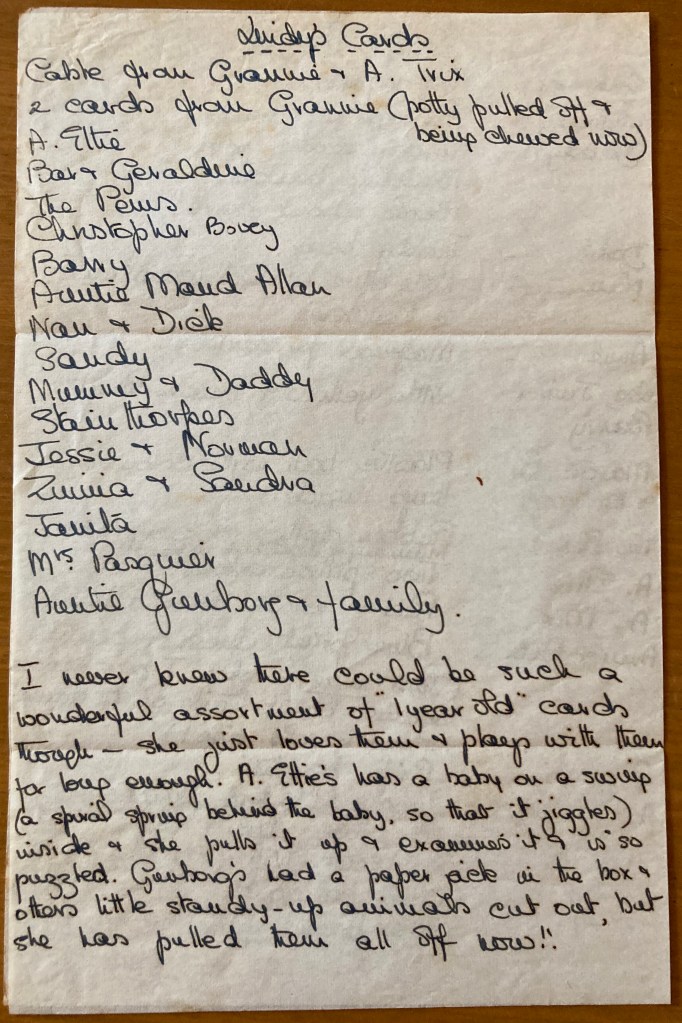 Lindy's Cards
Cable from Grannie & A. Trix
2 cards from Grannie (potty pulled off &
being chewed now)
A. Ettie
Bar & Geraldine
The Pews.
Christopher Bovey
Barry
Auntie Maud Allan
Nan & Dick
Sandy
Mummy & Daddy
Stainthorpes
Jessie & Norman
Zinnia & Sandra
Janita
Mrs Pasquier
Auntie & family.
I never knew there could be such a
wonderful assortment of "1 year old" cards
though - she just loves them & plays with them
for long enough. A. Ettie's has a baby on a swing
(a spiral spring behind the baby, so that it jiggles)
inside & she pulls it up & examines it & is so
puzzled. had a paper in the box &
others little standy-up animals cut out, but
she has pulled them all off now!!